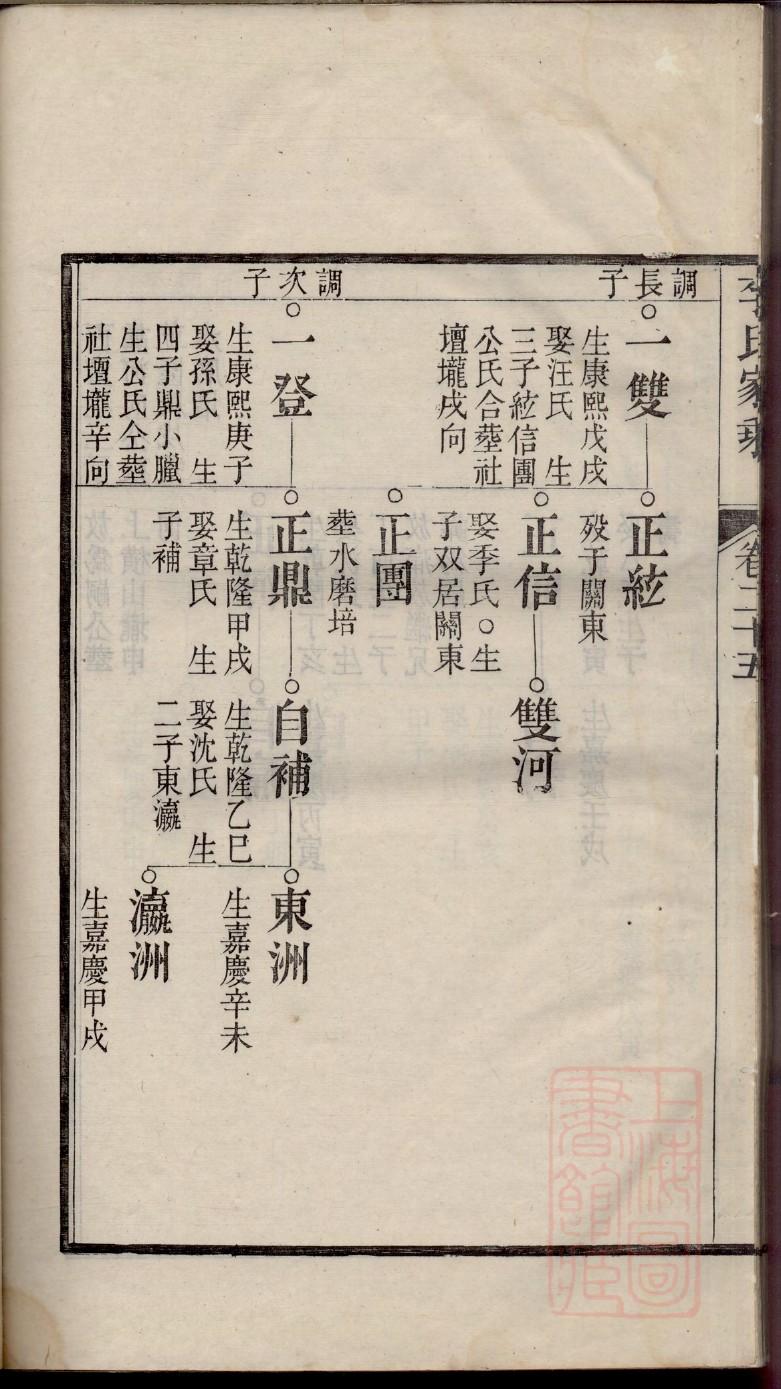 李氏家乘
卷二十五
調長子
一雙
生康熙戊戌
娶汪氏 生
三子絃信團
公氏合塟社
壇壠戌向
正絃
歿于關東
正信
娶季氏○生
子双居關東
雙河
正團
塟水磨培
調次子
一登
生康熙庚子
娶孫氏 生
四子鼎小臘
生公氏仝塟
社壇壠辛向
正鼎
生乾隆甲戌
娶章氏 生
子補
自補
生乾隆乙巳
娶沈氏 生
二子東瀛
東洲
生嘉慶辛未
瀛洲
生嘉慶甲戌
上海圖
書館藏